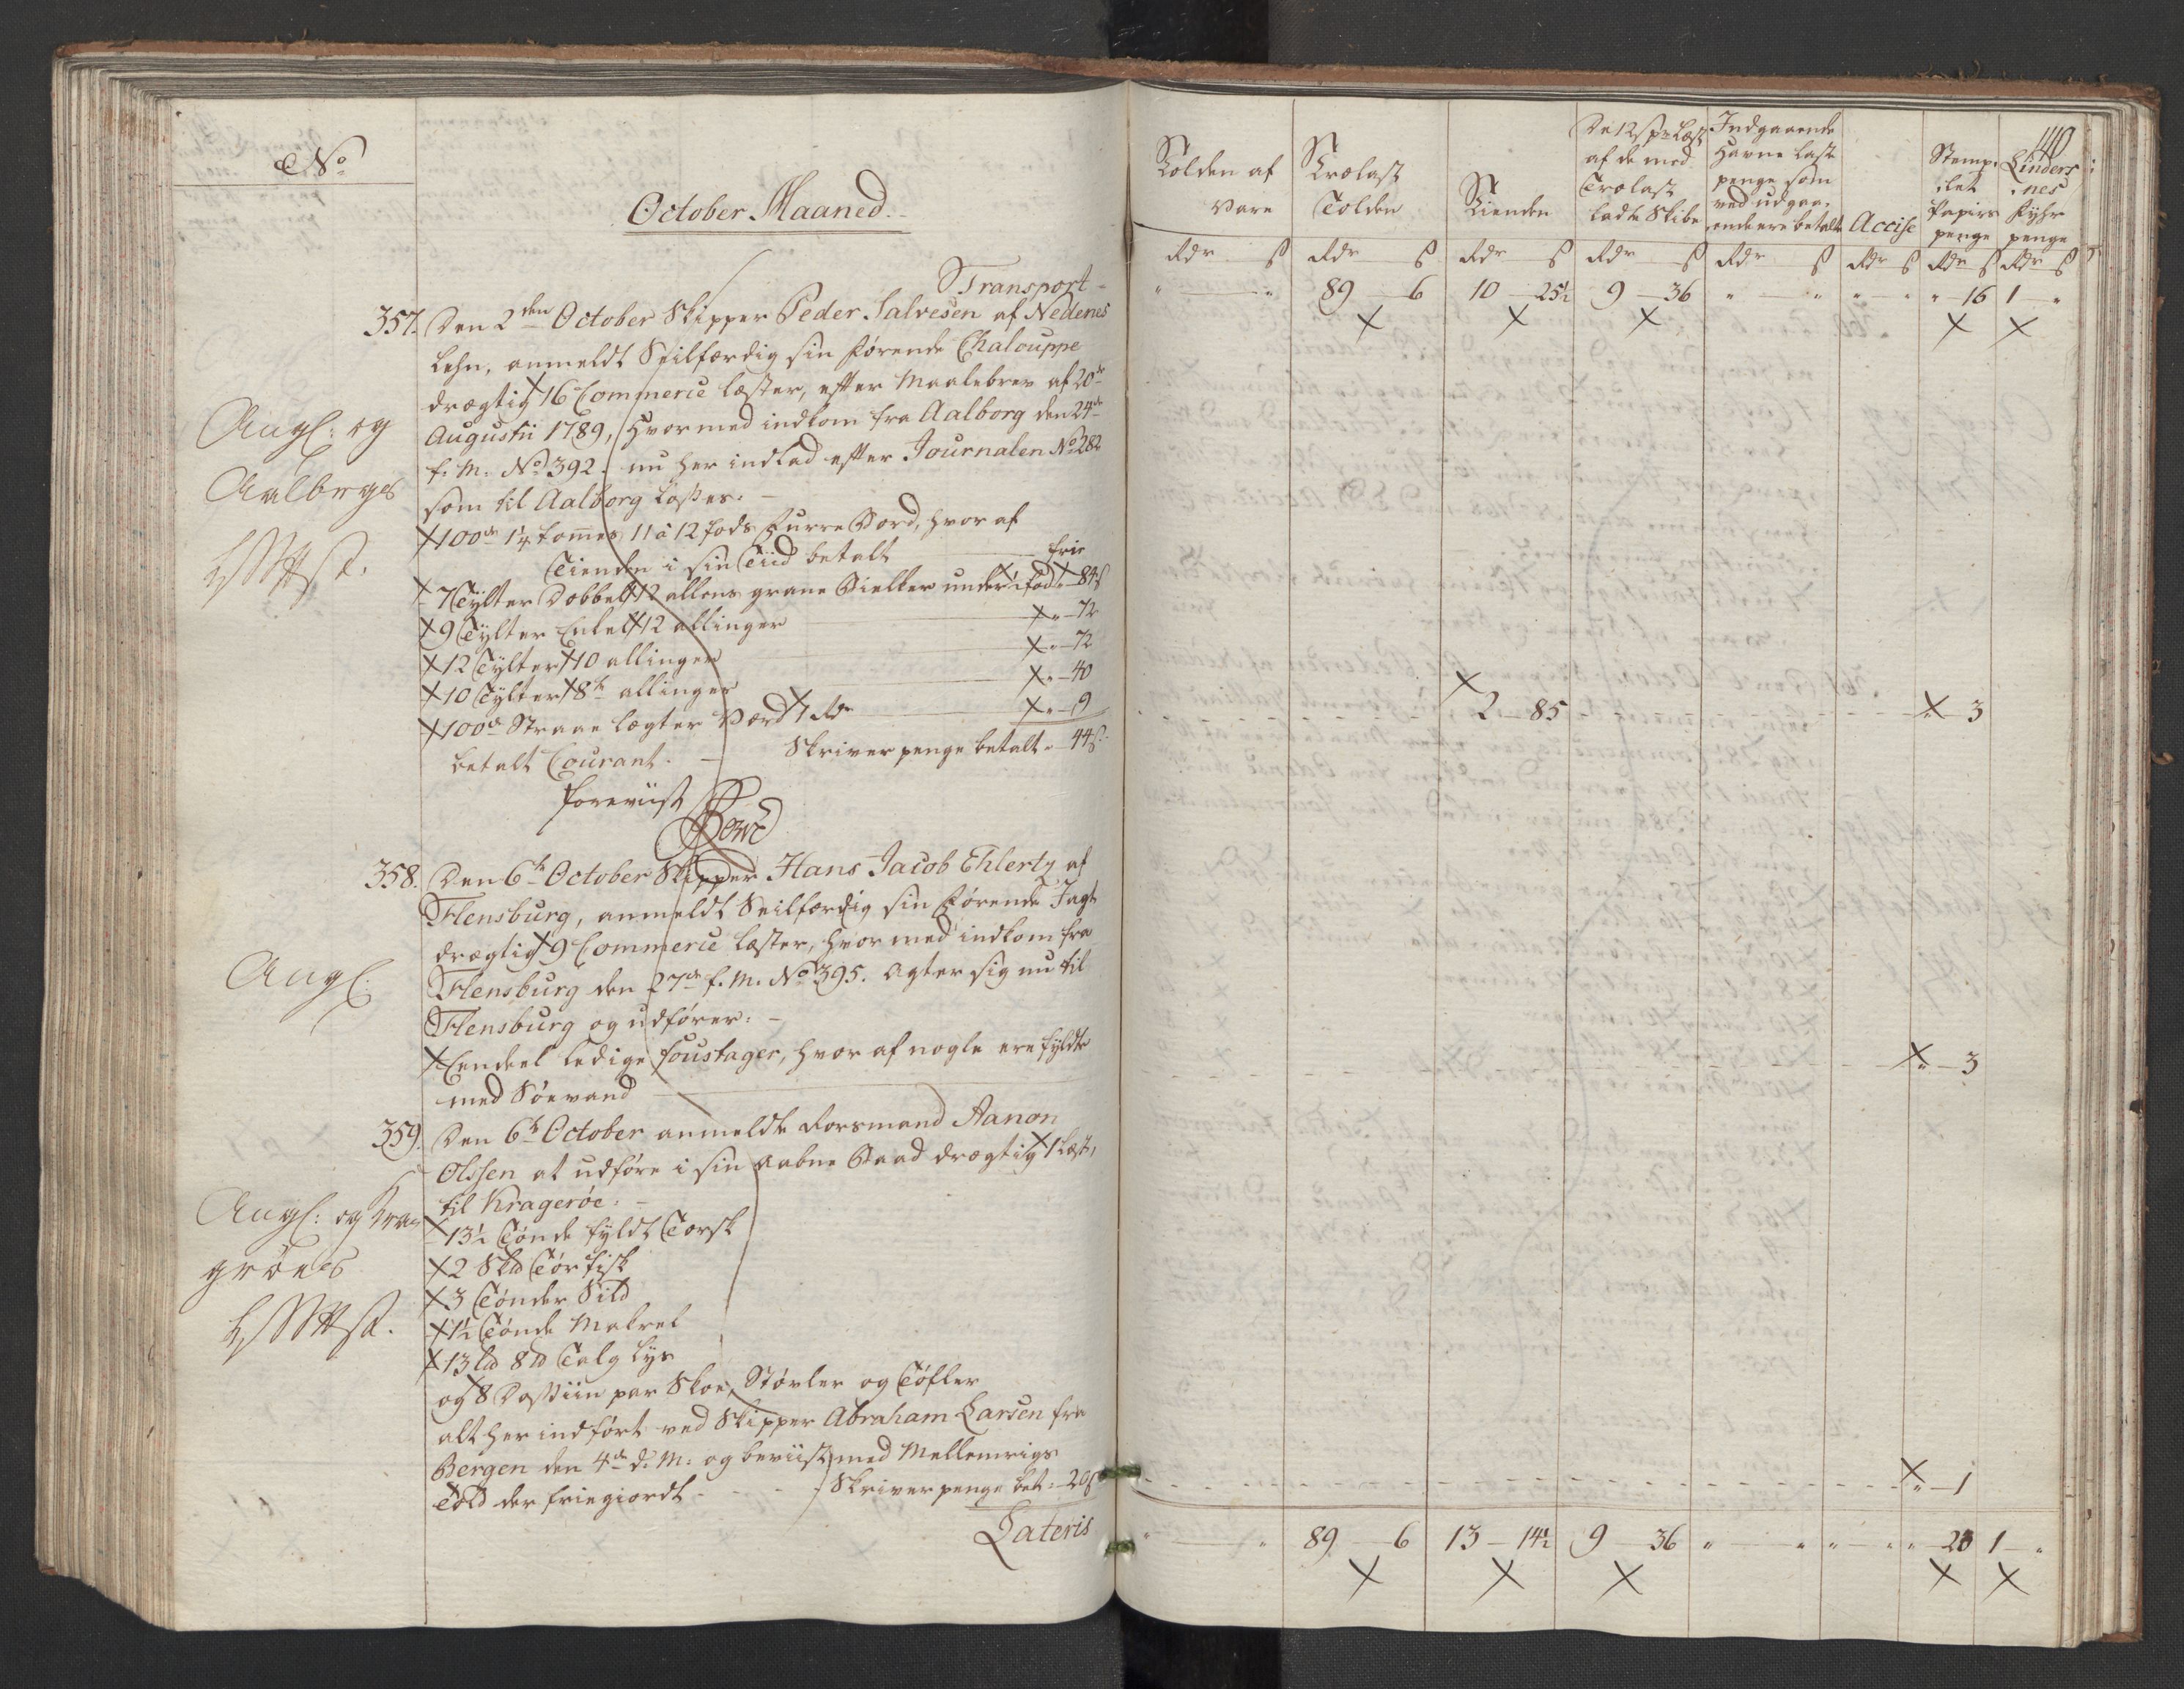 No
October Maaned.
Transport
357. Den 2den October Skipper Peder Salvesen af Nedenes
Lehn, anmeldt Seilfærdig sin førende Chalouppe
drægtig 16 Commerce læster, efter Maalebrev af 20de
Augustii 1789, Hvormed indkom fra Aalborg den 24de
f. M. No 392. nu her indlad efter Journalen No 282
som til Aalborg losses.
100de 1¼ tommes 11 à 12 fods Furre Bord, hvor af
Tienden i sin Tiid betalt frie
7 Tylter Dobbelt 12 allens grane Bielker under 1 fod " 84 s
9 Tylter Enkelt 12 allinger " 72
12 Tylter 10 allinger " 72
10 Tylter 8te allinger " 40
100de Straae lægter Værd 1 Rdr " 9
betalt Courant. Skriver penge betalt " 44 s
foreviist
358. Den 6te October Skipper Hans Jacob Ehlertz af
Flensburg, anmeldt Seilfærdig sin førende Jagt
drægtig 9 Commerce læster, hvormed indkom fra
Flensburg den 27de f. M. No 395. agter sig nu til
Flensburg og udfører:
Eendeel ledige foustager, hvor af nogle ere fyldte
med Søevand
359. Den 6te October anmeldte Rorsmand Aanon
Olssen at udføre i sin aabne Baad drægtig 1 Læst,
til Kragerøe:
13½ Tønde fyldt Torsk
2 Skd Tør fisk
3 Tønder Sild
1½ Tønde Makrel
13 Ld 8 d Talg Lys
og 8 Dossiin par Skoe, Støvler og Tøfler
alt her indført ved Skipper Abraham Larsen fra
Bergen den 4de d. M. og beviist med Mellemrigs
Told der friegiordt Skriver penge bet. 20 s
Lateris
Angl: og
Aalborgs
Angl:
Angl: og Kra
gröes
140
Tolden af Vare
Trælast Tolden
Tienden
De 12 s pr Læst af de med Trælast ladte Skibe
Indgaaende Havne laste penge som ved udgaaende ere betalt
Accise
Stemp let Papirs penge
Linders nes Fyhr penge
Rdr s Rdr s Rdr s Rdr s Rdr s Rdr s Rdr s Rdr s
" " 89 6 10 25½ 9 36 " " " " " 16 1 "
2 85 " 3
" 3
" 1
" " 89 6 13 14½ 9 36 " " " " " 23 1 "